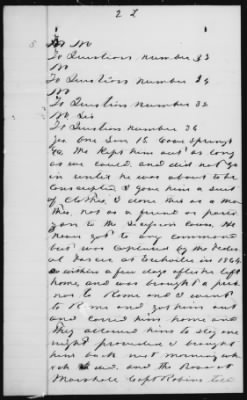 2 L
No
To Question Number 33
No
To Question Number 34
No
To Question Number 35
No Sir
To Question Number 36
yes One Son 15 Cave Springs
Ga. We kept him out as long
as we could. and did not go
in until he was about to be
Conscripted I gave him a suit
of Clothes, I done this as a Mo
ther, not as a friend or
to the Cause, He
never got to any command
but was Captured by the Feder
al Forces at in 1864
within a few days after he left
home, and was brought a pris
oner to Rome and I went
to Rome and got him out
and carried him home and
They allowed him to stay one
night provided I brought
him back next morning wh
ich I did, and the Provost
Marshall Capt Robins